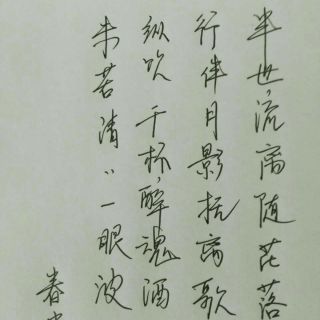 半世流离随花落
行伴月影抚离歌
纵饮千杯醉魂酒
未若清〃一眼波
春